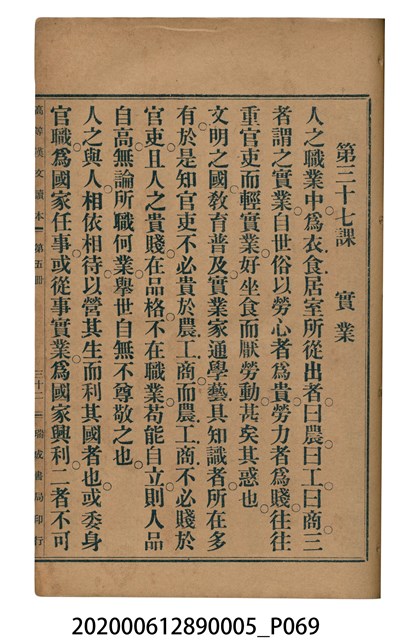 第三十七課　實業
人之職業中爲衣食居室所從出者曰農曰工曰商三
者謂之實業自世俗以勞心者爲貴勞力者爲賤往往
重官吏而輕實業好坐食而厭勞動甚矣其惑也
文明之國教育普及實業家通學藝具知識者所在多
有於是知官吏不必貴於農工商而農工商不必賤於
官吏且人之貴賤在品格不在職業苟能自立則人品
自高無論所職何業舉世自無不尊敬之也
人之與人相依相待以營其生而利其國者也或委身
官職爲國家任事或從事實業爲國家興利二者不可
高等漢文讀本　第五冊　三十二　瑞成書局印行
202000612890005_P069